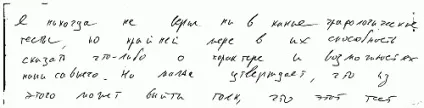 Я никогда не верил ни в какие графологические
тесты, по крайней мере в их способность
сказать что-либо о характере и возможностях
пишущего. Но Маша утверждает, что из
этого может выйти толк, что этот тест